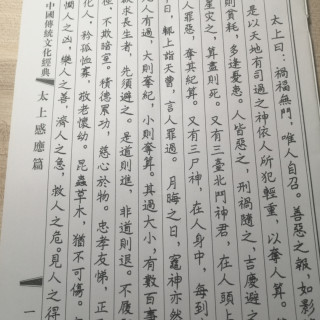 太上曰：禍福無門，唯人自召。善惡之報，如影
是以天地有司過之神依人所犯輕重，以奪人算。
則貧耗，多逢憂患。人皆惡之，刑禍隨之，吉慶避之
星災之，算盡則死。又有三臺北斗神君，在人頭上
人罪惡，奪其紀算。又有三尸神，在人身中，每到
日，輒上詣天曹，言人罪過。月晦之日，竈神亦然
人有過，大則奪紀，小則奪算。其過大小，有數百事
欲求長生者，先須避之。是道則進，非道則退。不履
徑，不欺暗室。積德累功，慈心於物。忠孝友悌，正
化人，矜孤恤寡，敬老懷幼。昆蟲草木，猶不可傷。
憫人之凶，樂人之善，濟人之急，救人之危。見人之得
中國傳統文化經典
太上感應篇
一